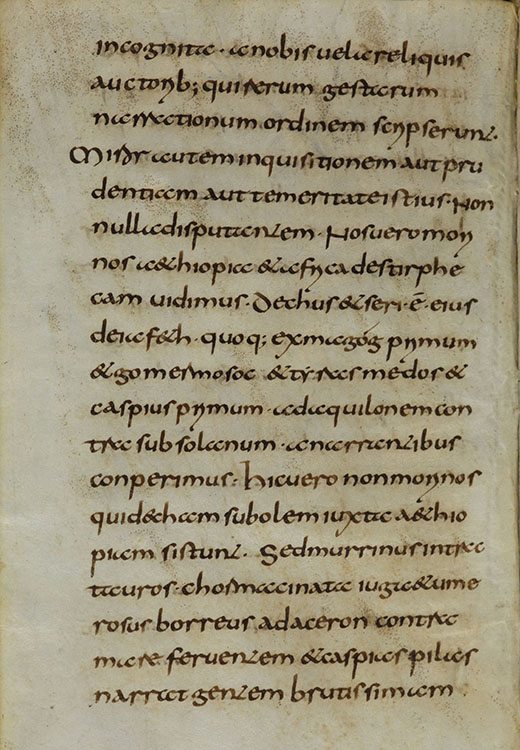 incognita · a nobis vel a reliquis
auctorib; qui rerum gestarum
narrationum ordinem scripserunt.
Misit autem inquisitionem aut pru
dentiam aut temeritate istius · Non
nulla disputantem · Nos vero mori
nos a&hiopia & africa destirphe
cam vidimus · dechus & seri · ē · eius
de iaf&h · quoq; ex magog primum
& gomer mosoc & tyras medos &
caspius primum · ad aquilonem con
tra subsolanum · a narrantibus
conperimus · hic vero non morinos
quid&ham subolem iuxta a&hio
piam sistunt · Sed murrinus intra
tauros · chosmacinata iuga & ume
rosus borreus ad aceron contra
mare ferventem & caspias pilas
narrat gentem brutissimam